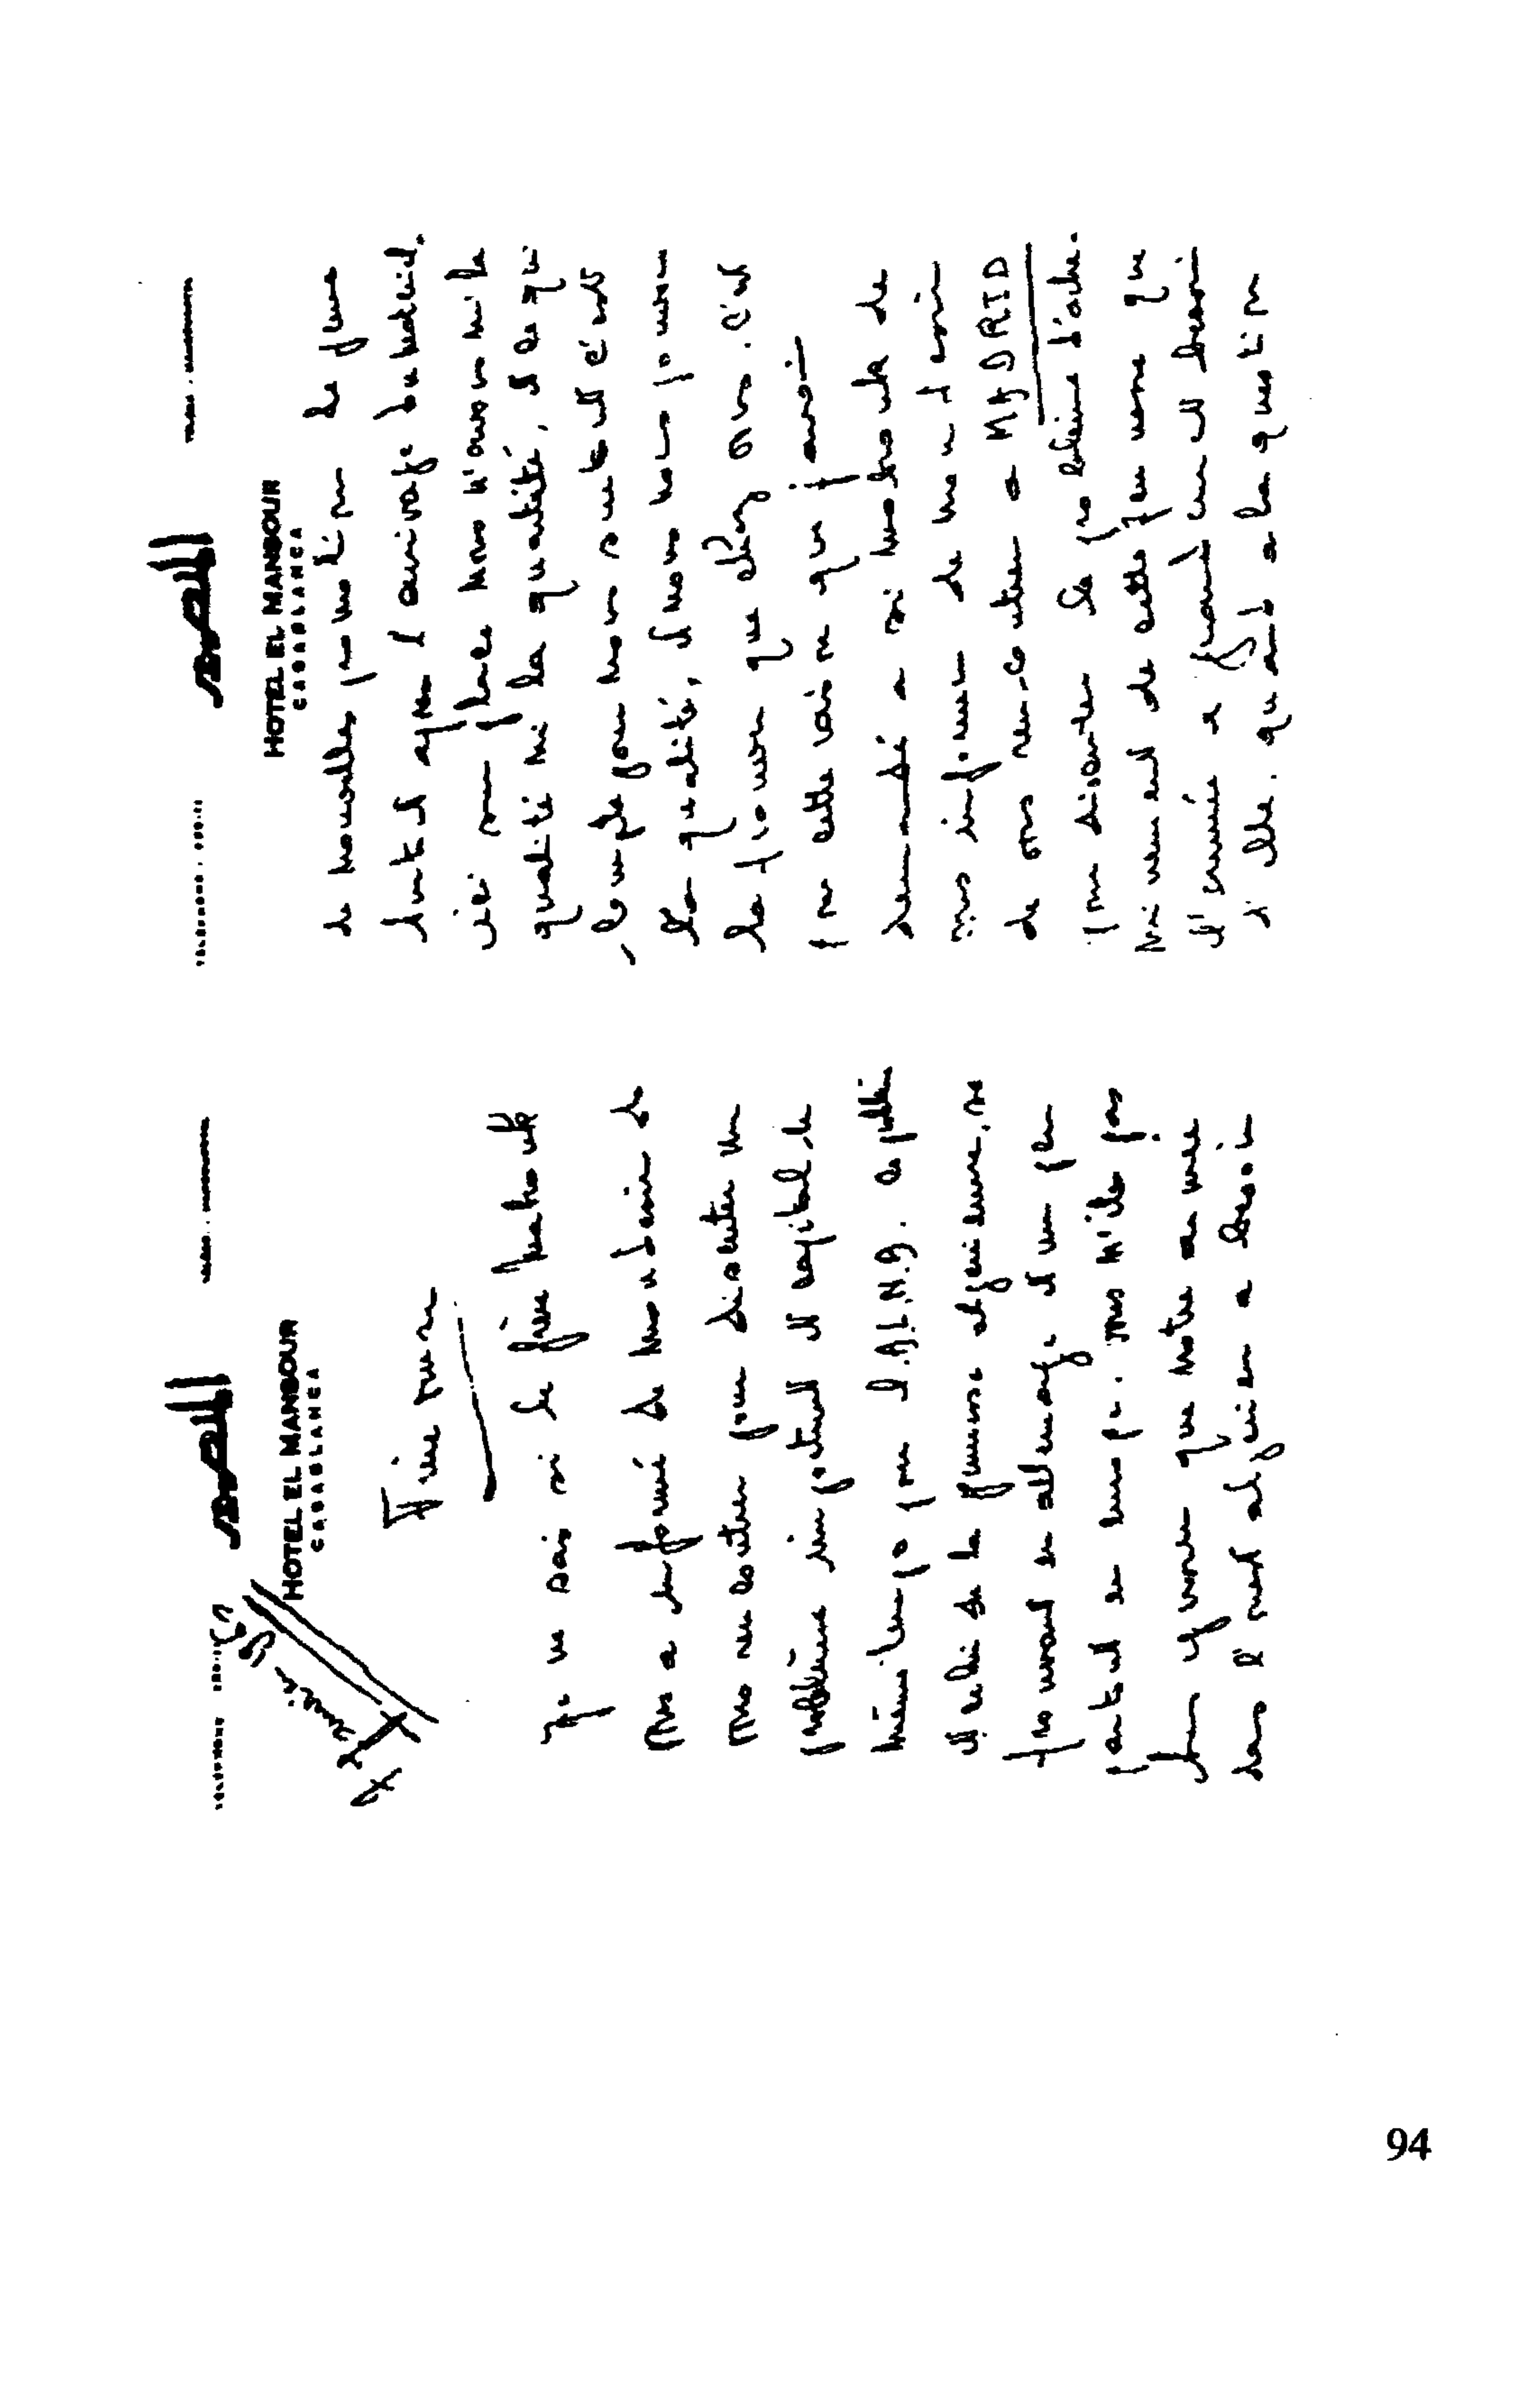 المنصور
HOTEL EL MANSOUR
CASABLANCA
Frère
je ne sais si le frère Mabrouk
vous a informé de mon desir de
vous rencontrer pour discuter un
problème important et capital de
même temps pour l'A.L.N.A. le problème
et celui de la jeunesse algerienne, se
trouvant en allemagne et un peu
partout en europe. vous n'êtes pas
sans savoir que notre armée
dans l'ouest algerien a besoin
المنصور
HOTEL EL MANSOUR
CASABLANCA
de nouvelles promotions de jeunes
surtout après l'arrivage du materiel.
ici sur place nous n'avons ni la
qualité ni la quantité, et ce qui
compte pour nous surtout c'est
la qualité, et nous ne pouvons
la trouver que chez vous. c'est
pour cette raison que j'avais
demandé a si mabrouk de
vous informer de mon desir
de vous rencontrer a MADRID
pour discuter le problème d'ache-
minement de cette jeunesse que
l'armée a grandement besoin
d'elle. quand a la question
94